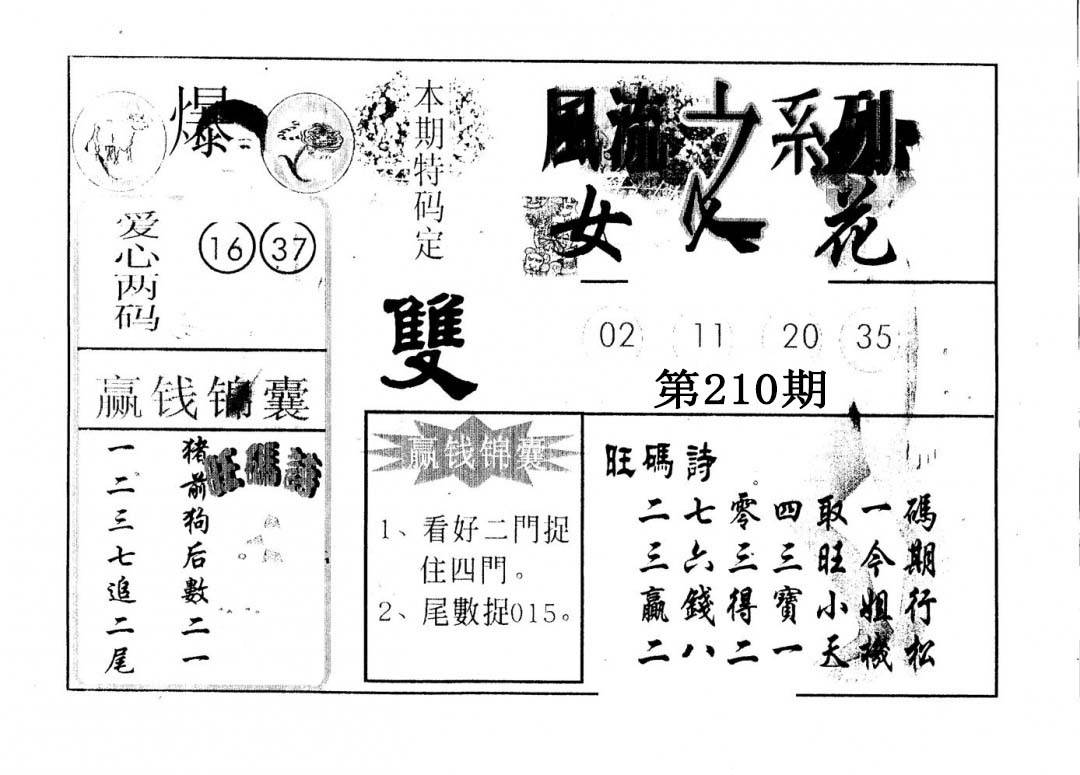 爆
本期特码定
雙
風流之系列
女人花
爱心两码
16 37
02 11 20 35
第210期
赢钱锦囊
猪前狗后數二一
一二三七追二尾
旺碼詩
赢钱锦囊
1、看好二門捉
住四門。
2、尾數捉015。
旺碼詩
二七零四取一碼
三六三三旺今期
贏錢得寶小姐行
二八二一天機松